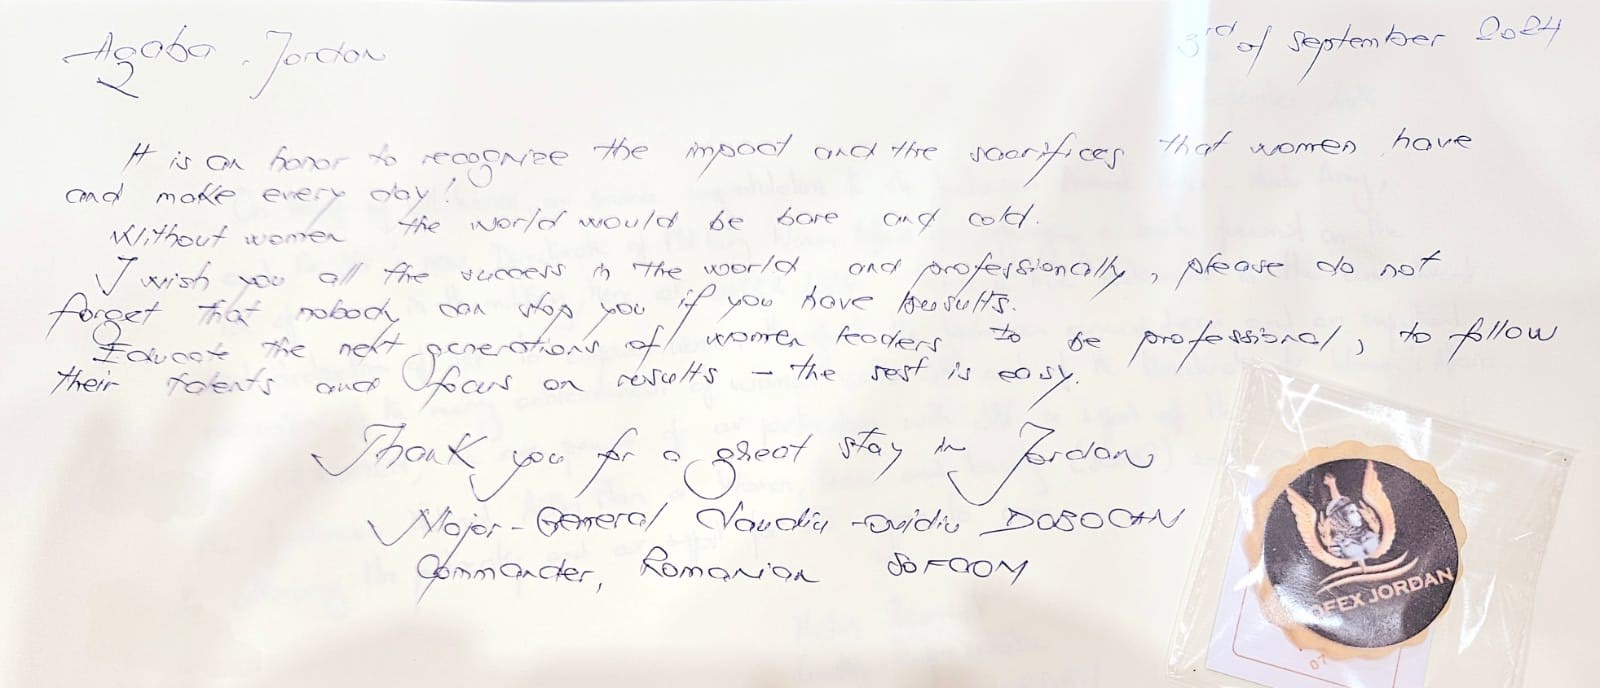 Aqaba, Jordan
3rd of September 2024
It is an honor to recognize the impact and the sacrifices that women have
and make every day!
Without women the world would be bare and cold.
I wish you all the success in the world and professionally, please do not
forget that nobody can stop you if you have results.
Educate the next generations of women leaders to be professional, to follow
their talents and focus on results – the rest is easy.
Thank you for a great stay in Jordan
Major-General Claudiu-Ovidiu DOBOCAN
Commander, Romanian SOFCOM
OFEX JORDAN
07